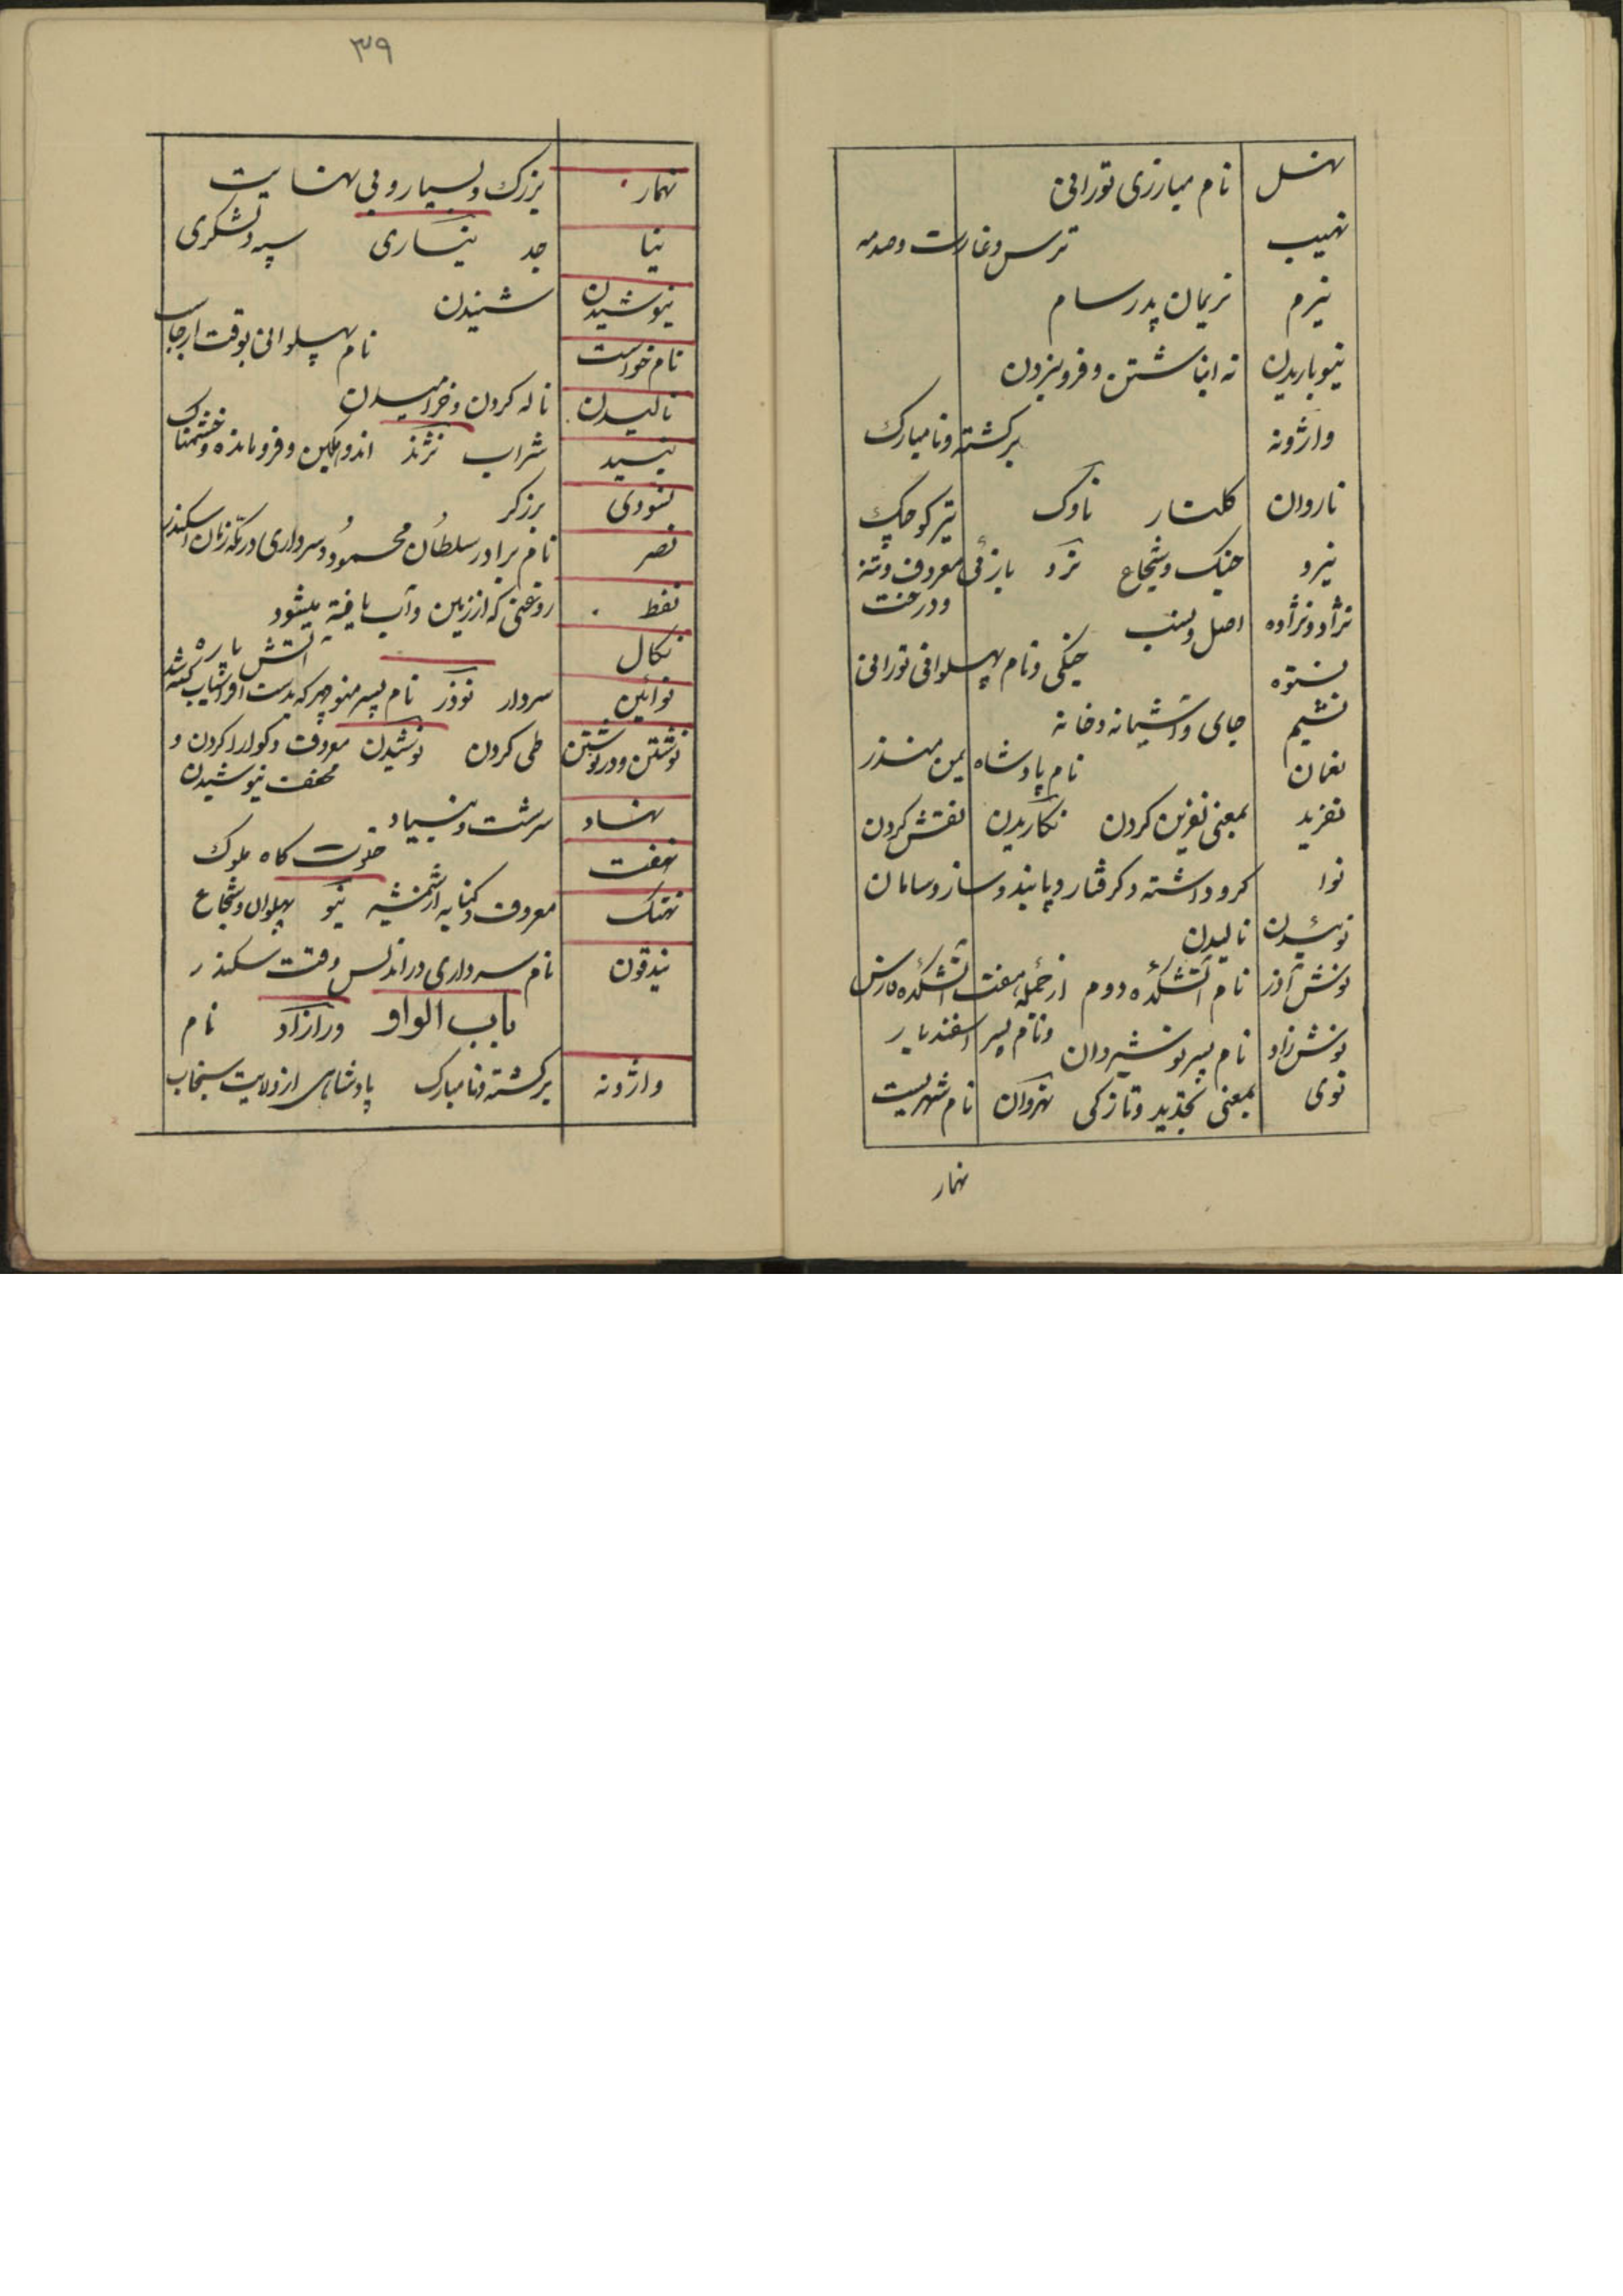 نهل نام مبارزی تورانی
نهیب ترس وغارت وصدمه
نیرم نریمان پدر سام
نیوباریدن نه انباشتن وفروبردن
واژونه برکشته ونامبارک
ناروان کلنار ناوک تیر کوچک
نیرو جنک وشجاع نرد بازئی معروف وتنه
ودرخت
نژاد ونژاده اصل ونسب
نستوه جنکی ونام پهلوانی تورانی
نشیم جای وآشیانه وخانه
نعمان نام پادشاه یمن منذر
نفرید بمعنی نفرین کردن نکاریدن نقش کردن
نوا کرو داشته وکرفتار وپابند وساز وسامان
نوئیدن نالیدن
نوش آذر نام آتشکدهٔ دوم از جملهٔ هفت آتشکده فارس
ونام پسر اسفندیار
نوش زاد نام پسر نوشیروان
نوی بمعنی تجدید وتازکی نهروان نام شهریست
نهمار
۳۹
نهمار بزرک وبسیار وبی نهایت
نیا جد نیساری سپه ولشکری
نیوشیدن شنیدن
نام خواست نام پهلوانی بوقت ارجاسب
نالیدن ناله کردن وخرامیدن
نبید شراب نژند اندوهکین وفرومانده وخشمناک
نسودی برزکر
نصر نام برادر سلطان محمود وسرداری در مکه زمان اسکندر
نفط روغنی که از زمین وآب یافته میشود
نکال آتش پاره
نوآئین سردار نوذر نام پسر منوچهر که بدست افراسیاب کشته شد
نوشتن ودرنوشتن طی کردن نوشیدن معروف وکوارا کردن و
مخفف نیوشیدن
نهاد سرشت وبنیاد
نهفت خلوت کاه ملوک
نهنک معروف وکنایه از شمشیر نیو پهلوان وشجاع
نیدقون نام سرداری در اندلس وقت سکندر
باب الواو ورازاد نام
واژونه برکشته ونامبارک پادشاهی از ولایت سنجاب